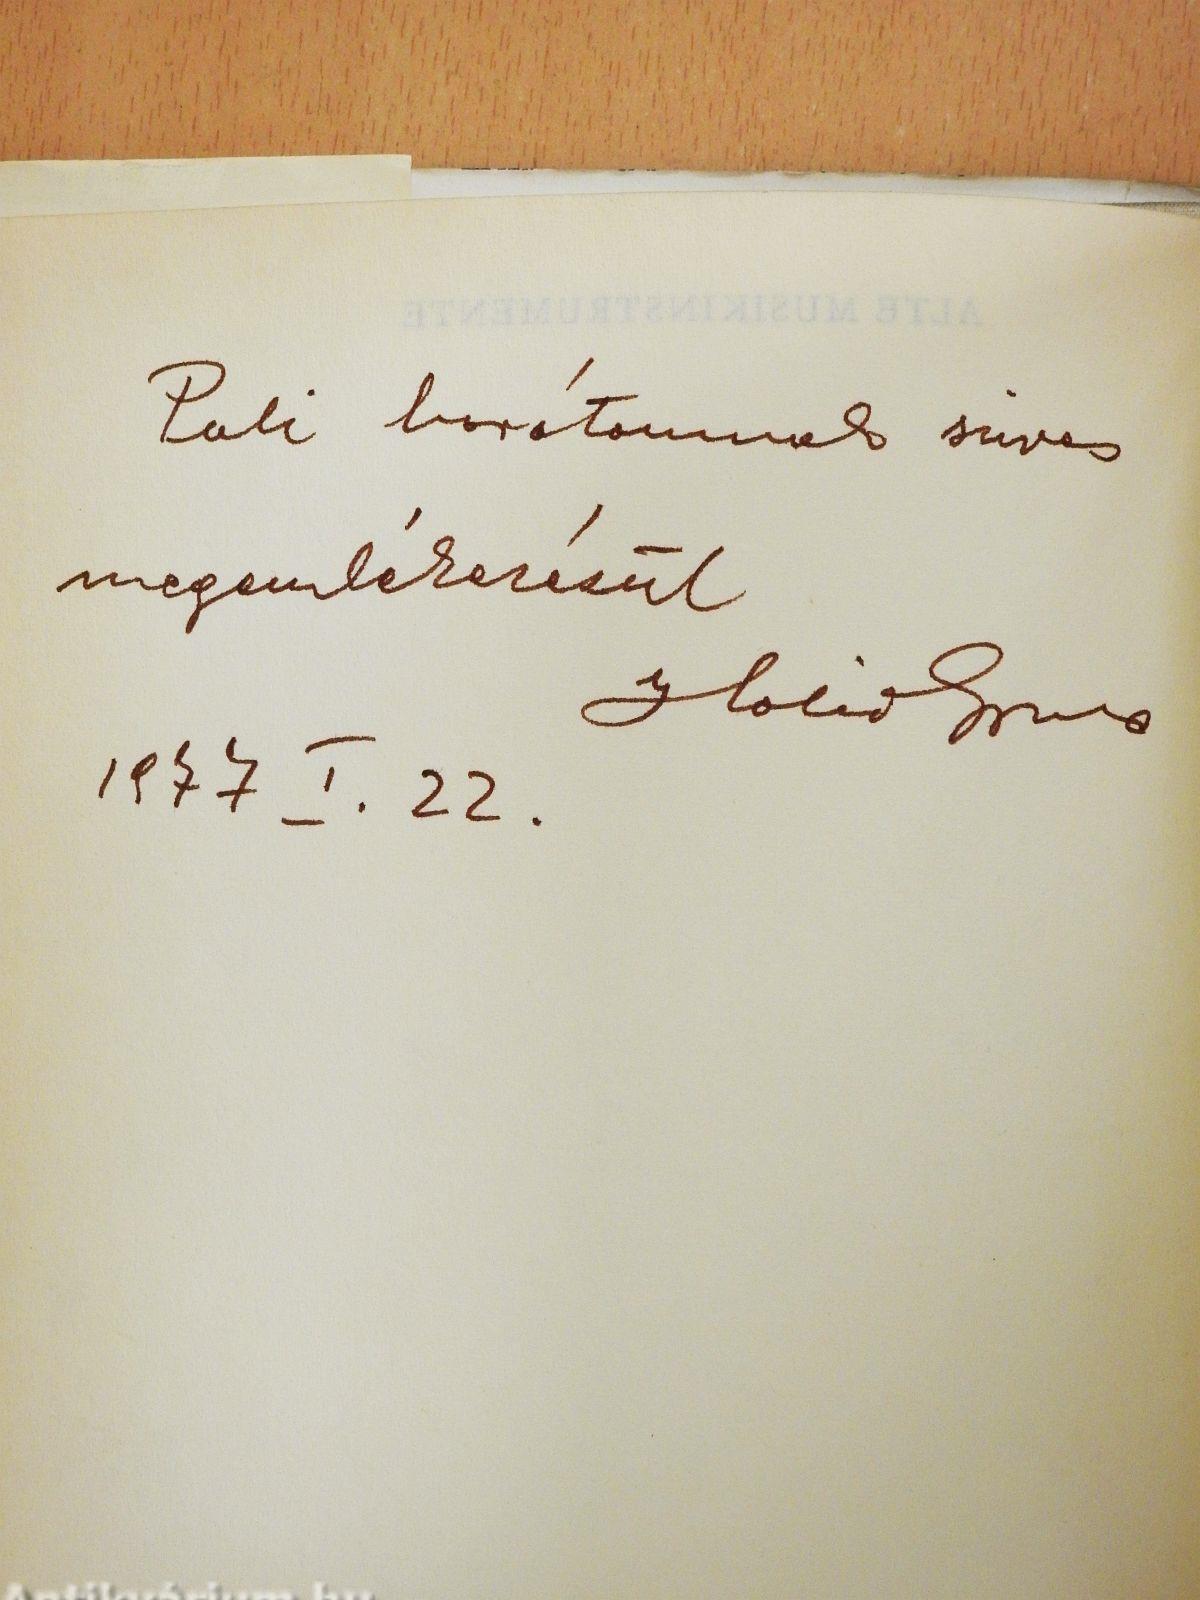 ALTE MUSIKINSTRUMENTE
Pali barátomnak szíves
megemlékezésül
1977 I. 22.
Antikvárium.hu